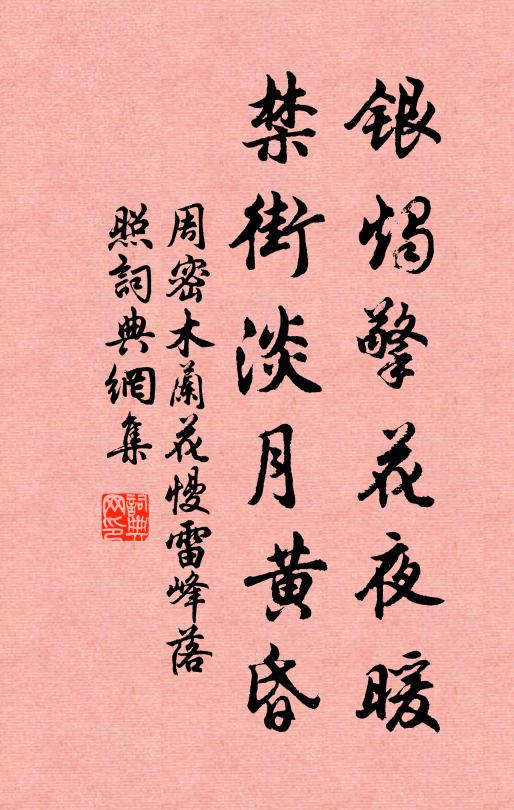 銀燭擎花夜暖
禁街淡月黄昏
周密木蘭花慢雷峰落
照詞典網集
詞典网印